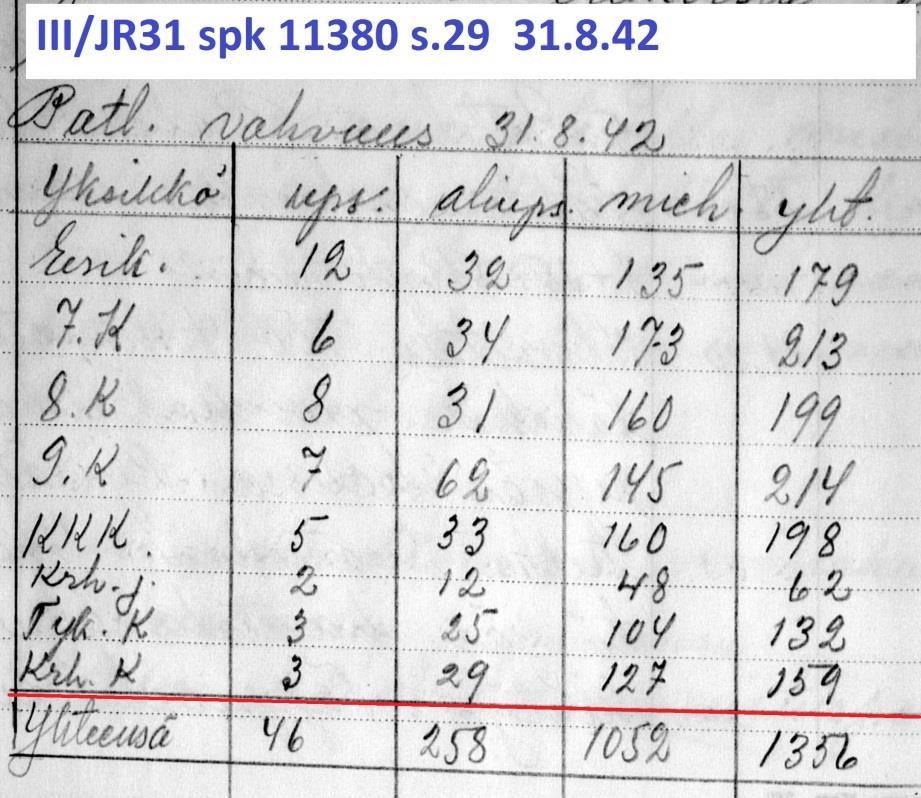 III/JR31 spk 11380 s.29 31.8.42
Patl. vahvuus 31.8.42
Yksikkö ups. aliups. mieh. yht.
Esik. 12 32 135 179
7.K 6 34 173 213
8.K 8 31 160 199
9.K 7 62 145 214
KKK. 5 33 160 198
Krh. j. 2 12 48 62
Tyk. K 3 25 104 132
Krh. K 3 29 127 159
Yhteensä 46 258 1052 1356